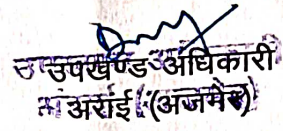 उपखण्ड अधिकारी
अराई (अजमेर)